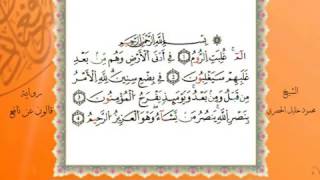 بِسْمِ اللَّهِ الرَّحْمَٰنِ الرَّحِيمِ
الٓمٓ غُلِبَتِ الرُّومُ فِي أَدْنَى الْأَرْضِ وَهُم مِّنۢ بَعْدِ
غَلَبِهِمْ سَيَغْلِبُونَ فِي بِضْعِ سِنِينَ لِلَّهِ الْأَمْرُ
مِن قَبْلُ وَمِنۢ بَعْدُ وَيَوْمَئِذٍ يَفْرَحُ الْمُؤْمِنُونَ
بِنَصْرِ اللَّهِ يَنصُرُ مَن يَشَاءُ وَهُوَ الْعَزِيزُ الرَّحِيمُ
الشيخ
محمود خليل الحصري
رواية
قالون عن نافع